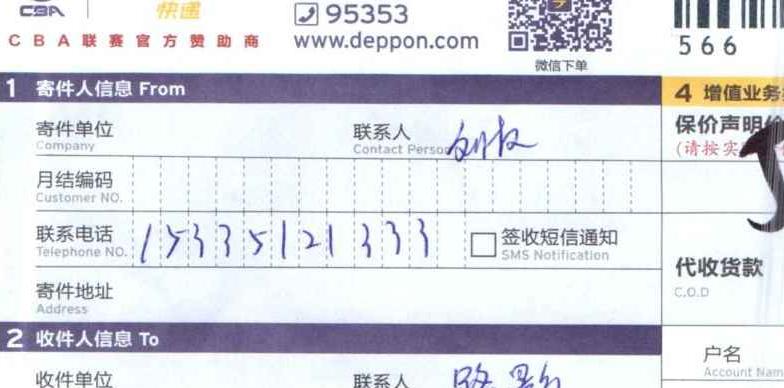 CBA 快递 95353
CBA联赛官方赞助商 www.deppon.com
微信下单
566
1 寄件人信息 From
寄件单位
Company
联系人
Contact Person
月结编码
Customer NO.
联系电话
Telephone NO.
15335121333
签收短信通知
SMS Notification
寄件地址
Address
2 收件人信息 To
收件单位
联系人
4 增值业务
保价声明价
(请按实
代收货款
C.O.D
户名
Account Nam